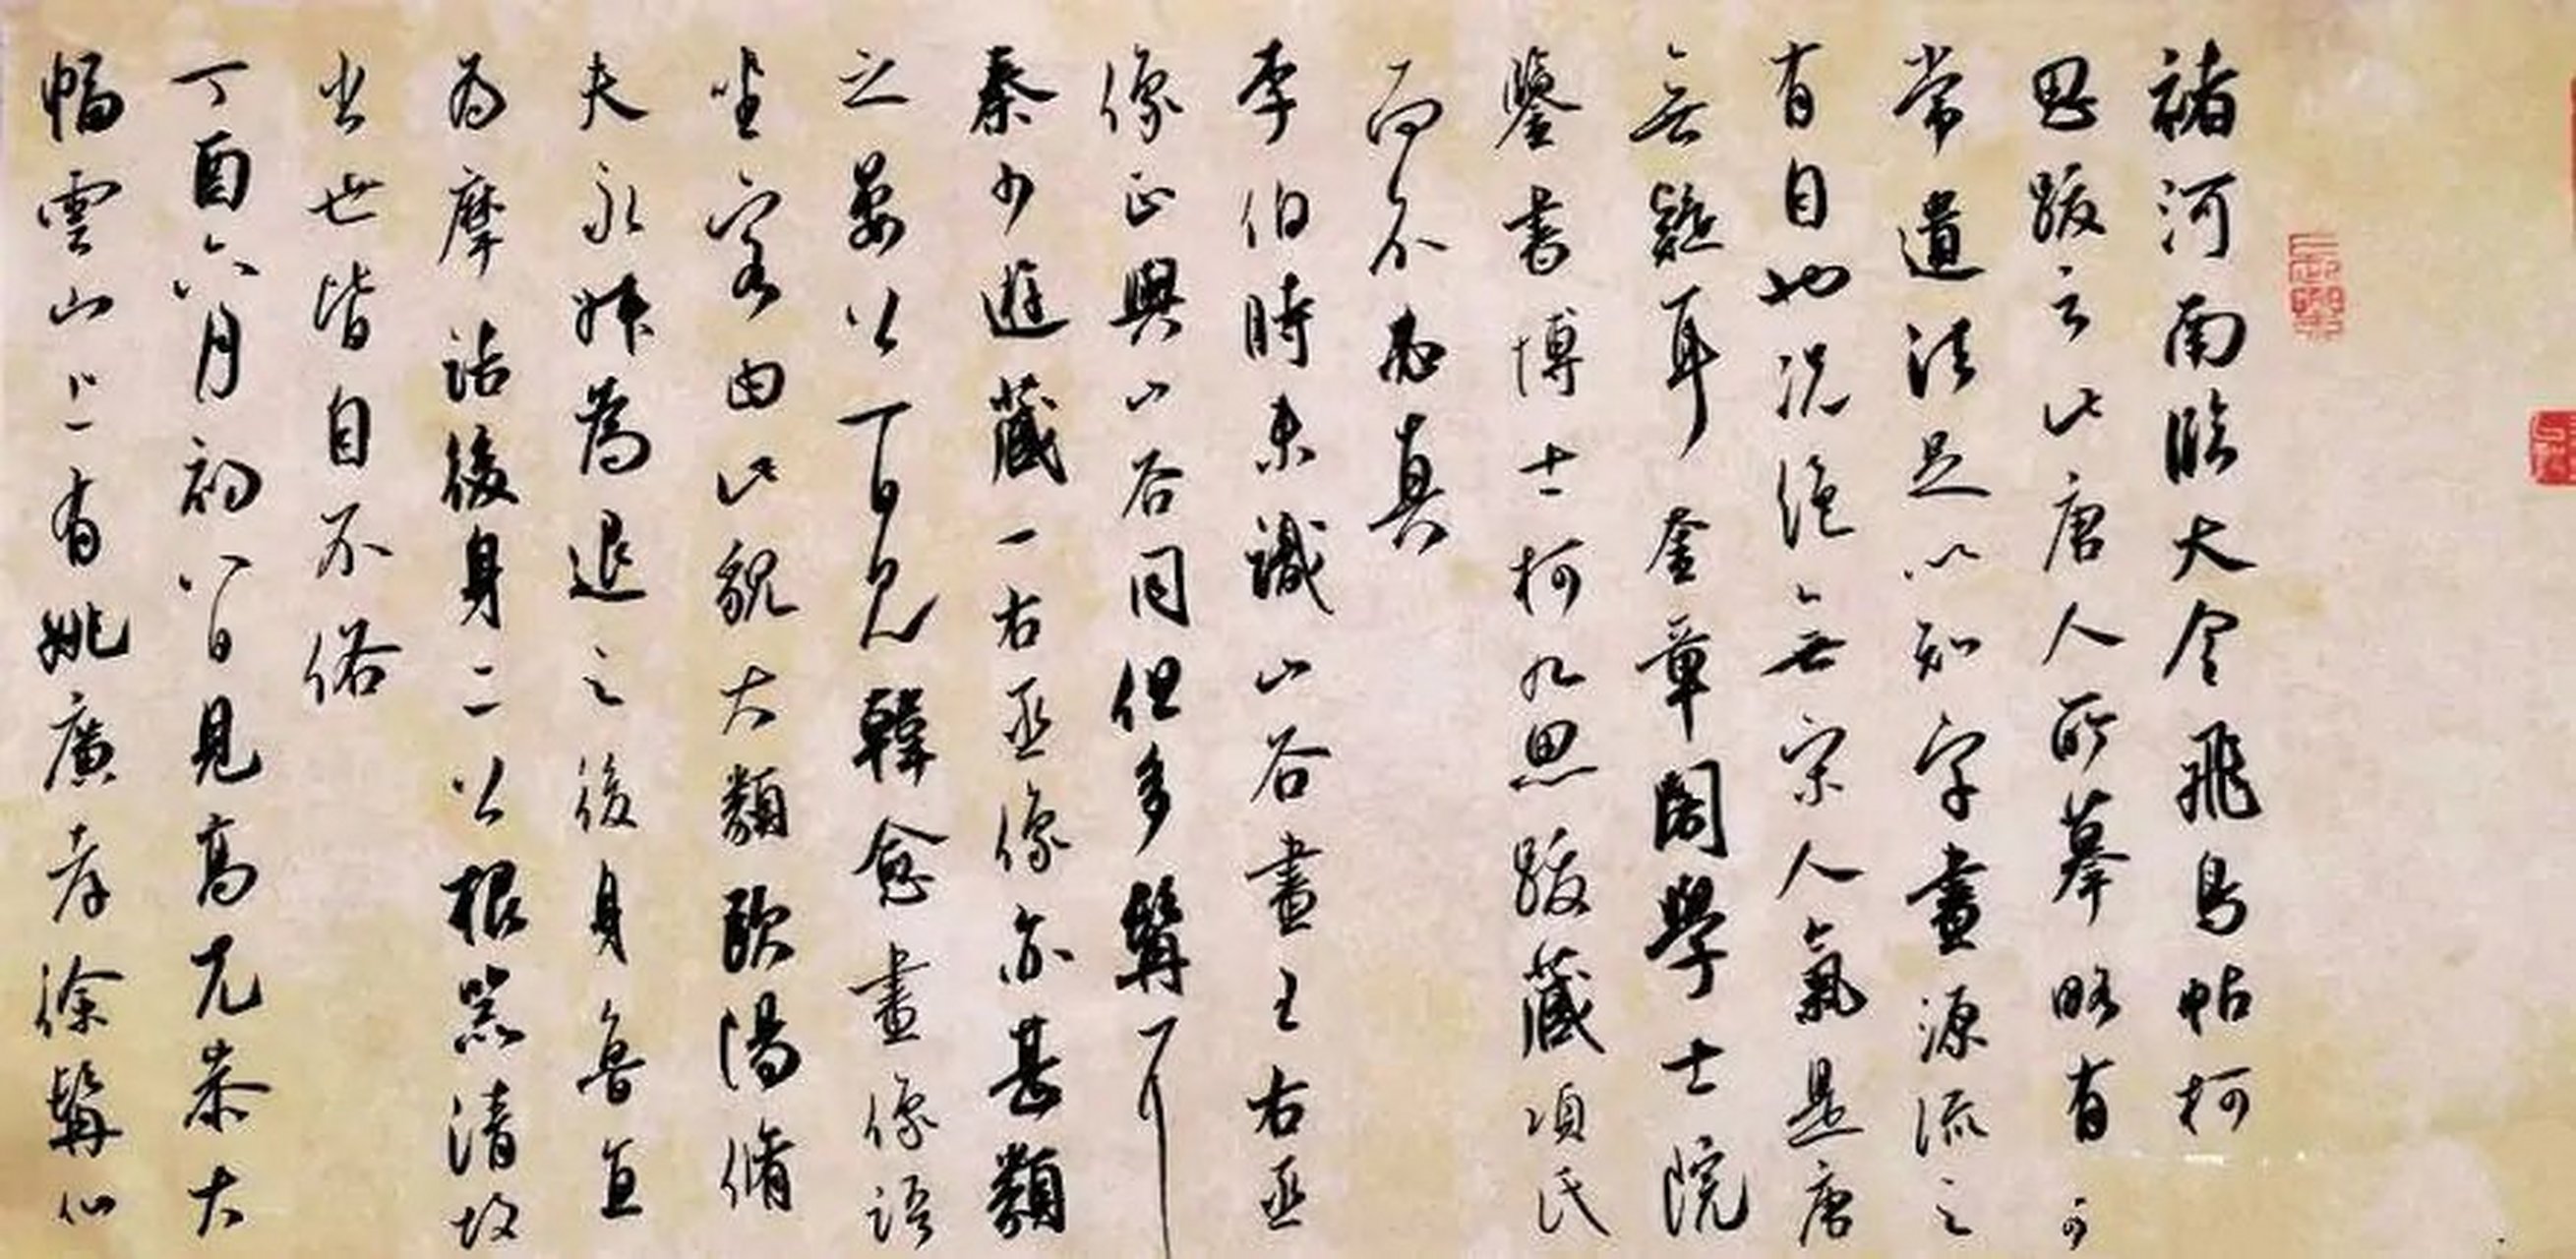 褚河南臨大令飛鳥帖柯
思跋云此唐人所摹略有可
常遺法足以知字畫源流之
有自也況絕無宋人氣是唐
無疑耳奎章閣學士院
鑒書博士柯九思跋藏項氏
而不為真
李伯時未識山谷畫王右丞
像正與山谷同但多髯耳
秦少游藏一右丞像亦甚類
之異公一日見韓愈畫像語
坐客曰此貌大類歐陽脩
夫永叔為退之後身魯直
為摩詰後身二公根器清故
出世皆自不俗
丁酉六月初八日見高尤恭大
幅雲山上有姚廣孝徐髯仙